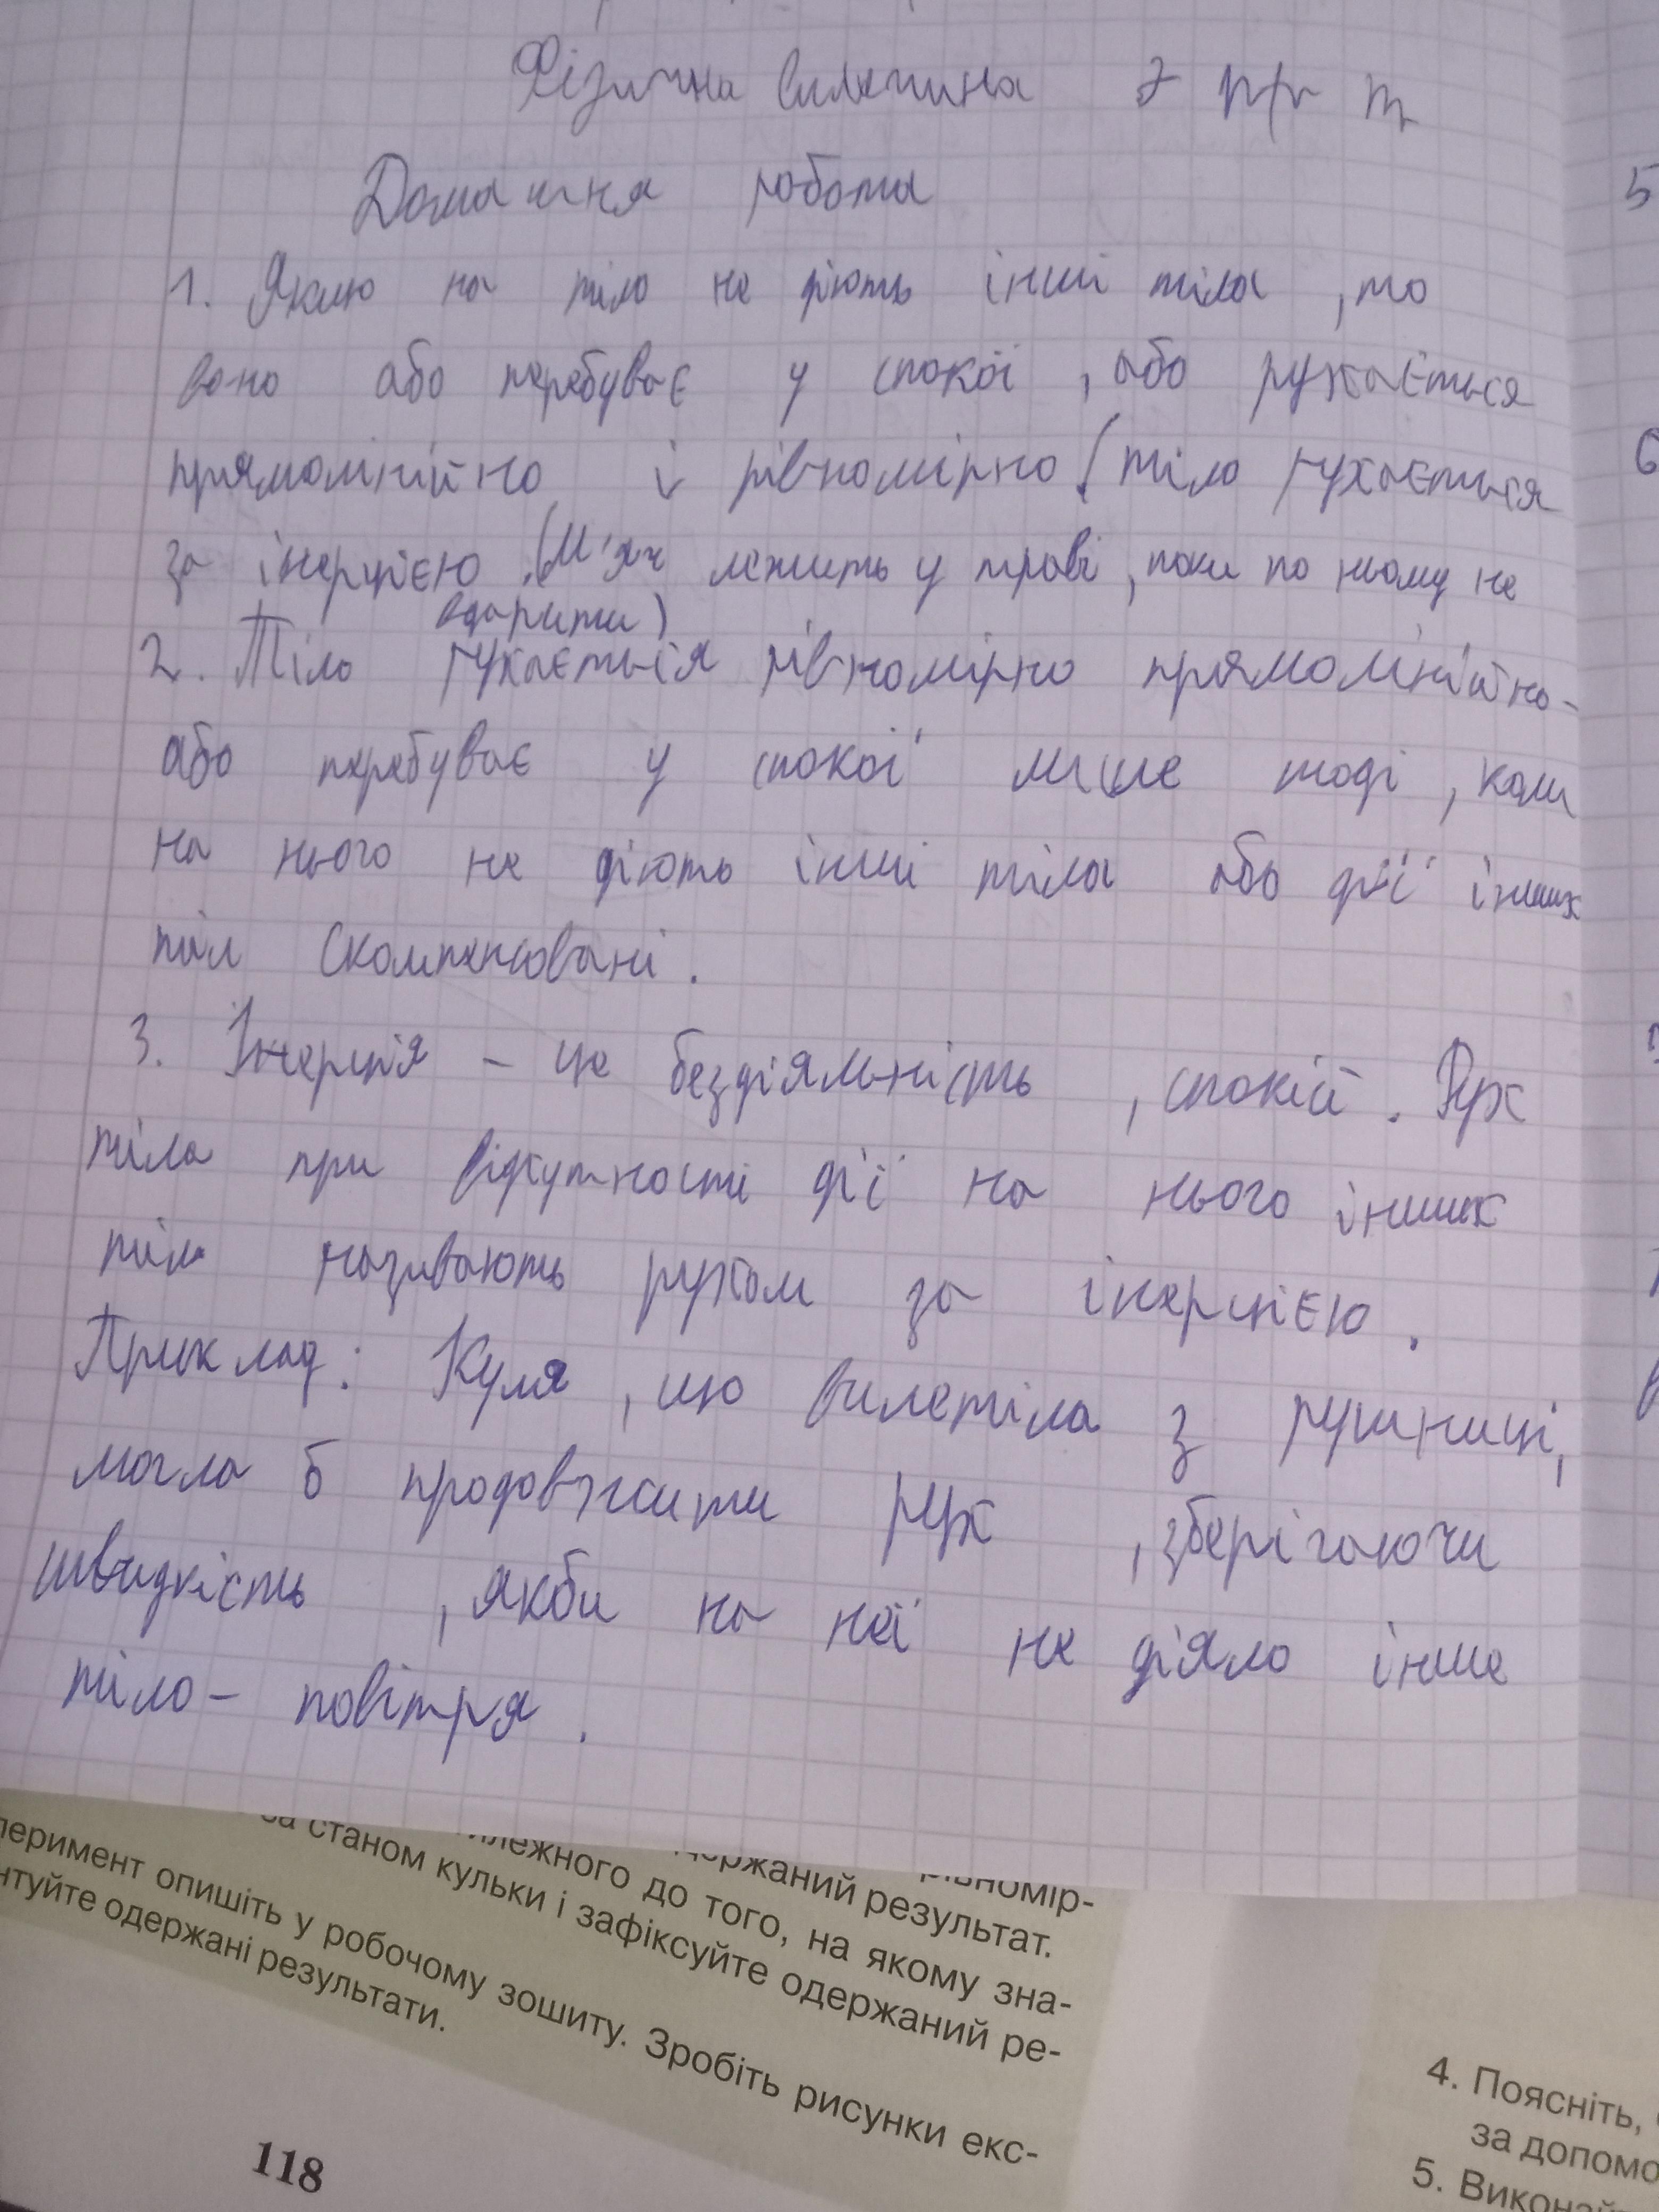 Фізична величина
Домашня робота
1. Якщо на тіло не діють інші тіла, то
воно або перебуває у спокої, або рухається
прямолінійно і рівномірно (тіло рухається
за інерцією. (М'яч лежить у траві, поки по ньому не
вдарити)
2. Тіло рухається рівномірно прямолінійно-
або перебуває у спокої лише тоді, коли
на нього не діють інші тіла або дії інших
тіл скомпенсовані.
3. Інерція – це бездіяльність, спокій. Рух
тіла при відсутності дії на нього інших
тіл називають рухом за інерцією.
Приклад: Куля, що вилетіла з рушниці,
могла б продовжити рух, зберігаючи
швидкість, якби на неї не діяло інше
тіло – повітря.
5
6
рівномір-
держаний результат.
илежного до того, на якому зна-
за станом кульки і зафіксуйте одержаний ре-
перимент опишіть у робочому зошиту. Зробіть рисунки екс-
нтуйте одержані результати.
118
4. Поясніть,
за допомо
5. Виконай